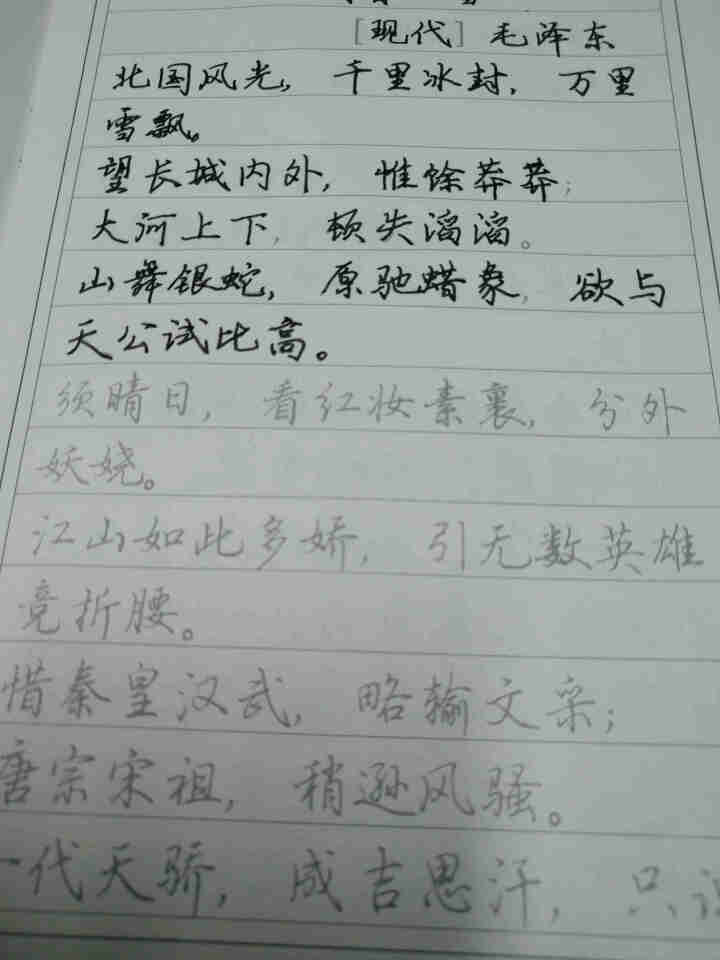 [现代] 毛泽东
北国风光, 千里冰封, 万里
雪飘。
望长城内外, 惟馀莽莽;
大河上下, 顿失滔滔。
山舞银蛇, 原驰蜡象, 欲与
天公试比高。
须晴日, 看红妆素裹, 分外
妖娆。
江山如此多娇, 引无数英雄
竞折腰。
惜秦皇汉武, 略输文采;
唐宗宋祖, 稍逊风骚。
一代天骄, 成吉思汗, 只